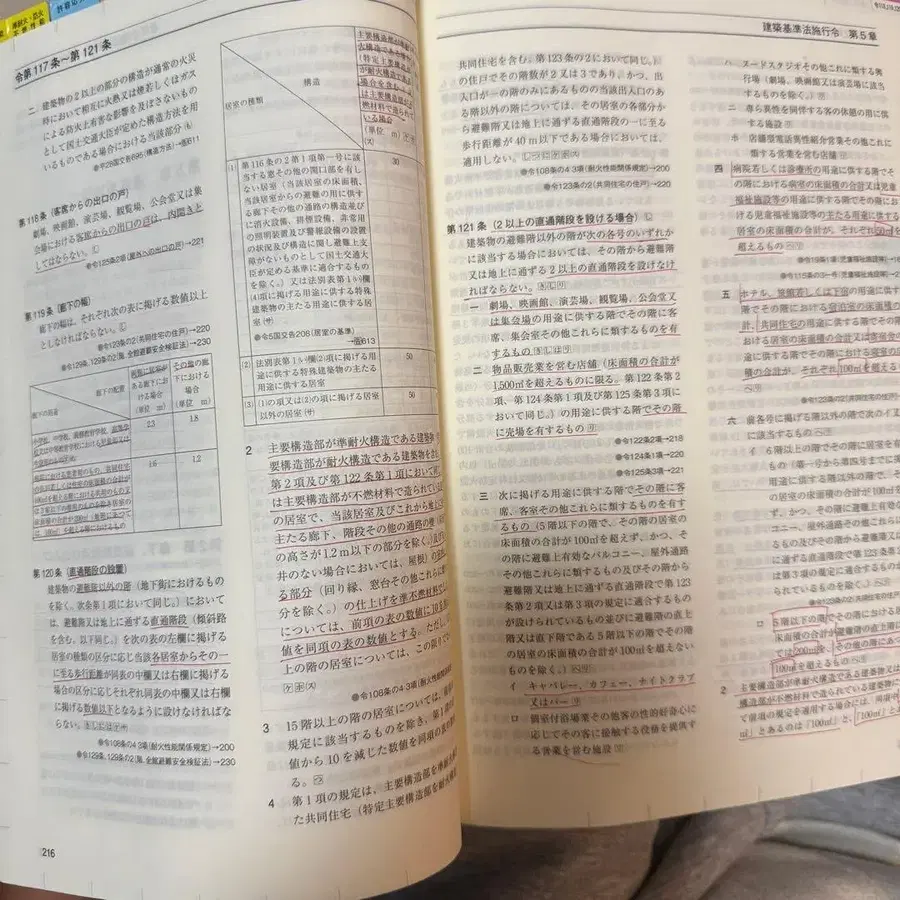 準耐火・防火
令第117条〜第121条
二 建築物の2以上の部分の構造が通常の火災
時において相互に火熱又は煙若しくはガス
による防火上有害な影響を及ぼさないもの
として国土交通大臣が定めた構造方法を用
いるものである場合における当該部分
●平28国交告695(構造方法)→告611
第118条(客席からの出口の戸)
劇場、映画館、演芸場、観覧場、公会堂又は集
会場における客席からの出口の戸は、内開きと
してはならない。
●令125条2項(屋外への出口の戸)→221
第119条(廊下の幅)
廊下の幅は、それぞれ次の表に掲げる数値以上
としなければならない。
●令123条の2(共同住宅の住戸)→220
●令129条、129条の2(階、全館避難安全検証法)→230
廊下の配置
廊下の用途
両側に居室が
ある廊下にお
ける場合
(単位 m)
その他の廊
下における
場合
(単位 m)
2.3
1.8
1.6
1.2
第120条(直通階段の設置)
建築物の避難階以外の階(地下街におけるもの
を除く。次条第1項において同じ。)において
は、避難階又は地上に通ずる直通階段(傾斜路
を含む。以下同じ。)を次の表の左欄に掲げる
居室の種類の区分に応じ当該各居室からその一
に至る歩行距離が同表の中欄又は右欄に掲げる
場合の区分に応じそれぞれ同表の中欄又は右欄
に掲げる数値以下となるように設けなければな
らない。
●令108条の4 3項(耐火性能関係規定)→200
●令129条、129条の2(階、全館避難安全検証法)→230
216
構造
居室の種類
主要構造部が準
(特定主要構造部
(単位 m)
(1) 第116条の2第1項第一号に該
当する窓その他の開口部を有し
ない居室(当該居室の床面積、
当該居室からの避難の用に供す
る廊下その他の通路の構造並び
に消火設備、排煙設備、非常用
の照明装置及び警報設備の設置
の状況及び構造に関し避難上支
障がないものとして国土交通大
臣が定める基準に適合するもの
を除く。)又は法別表第1(い)欄
(4)項に掲げる用途に供する特殊
建築物の主たる用途に供する居
室
30
●令5国交告208(居室の基準)
→告613
(2) 法別表第1(い)欄(2)項に掲げる用
途に供する特殊建築物の主たる
用途に供する居室
50
(3) (1)の項又は(2)の項に掲げる居室
以外の居室
50
2 主要構造部が準耐火構造である建築物
要構造部が耐火構造である建築物を含
第2項及び第122条第1項において
は主要構造部が不燃材料で造られてい
の居室で、当該居室及びこれから地上に
主たる廊下、階段その他の通路の壁
の高さが1.2m以下の部分を除く。)及び
井のない場合においては、屋根)の室内
る部分(回り縁、窓台その他これらに
分を除く。)の仕上げを準不燃材料でした
については、前項の表の数値に10を
値を同項の表の数値とする。ただし、
上の階の居室については、この限りで
●令108条の4 3項(耐火性能関係
3 15階以上の階の居室については、前項
規定に該当するものを除き、第1項の
値から10を減じた数値を同項の表の
る。
4 第1項の規定は、主要構造部を準耐火
た共同住宅(特定主要構造部を耐火構
建築基準法施行令 第5章
共同住宅を含む。第123条の2において同じ。)
の住戸でその階数が2又は3であり、かつ、出
入口が一の階のみにあるものの当該出入口のあ
る階以外の階については、その居室の各部分か
ら避難階又は地上に通ずる直通階段の一に至る
歩行距離が40m以下である場合においては、
適用しない。
●令108条の4 3項(耐火性能関係規定)→200
●令123条の2(共同住宅の住戸)→220
第121条(2以上の直通階段を設ける場合)
建築物の避難階以外の階が次の各号のいずれか
に該当する場合においては、その階から避難階
又は地上に通ずる2以上の直通階段を設けなけ
ればならない。
一 劇場、映画館、演芸場、観覧場、公会堂又
は集会場の用途に供する階でその階に客
席、集会室その他これらに類するものを有
するもの
二 物品販売業を営む店舗(床面積の合計が
1,500㎡を超えるものに限る。第122条第2
項、第124条第1項及び第125条第3項に
おいて同じ。)の用途に供する階でその階
に売場を有するもの
●令122条2項→218
●令124条1項→220
●令125条3項→221
三 次に掲げる用途に供する階でその階に客
席、客室その他これらに類するものを有す
るもの(5階以下の階で、その階の居室の
床面積の合計が100㎡を超えず、かつ、そ
の階に避難上有効なバルコニー、屋外通路
その他これらに類するもの及びその階から
避難階又は地上に通ずる直通階段で第123
条第2項又は第3項の規定に適合するもの
が設けられているもの並びに避難階の直上
階又は直下階である5階以下の階でその階
の居室の床面積の合計が100㎡を超えない
ものを除く。)
イ キャバレー、カフェー、ナイトクラブ
又はバー
ロ 個室付浴場業その他客の性的好奇心に
応じてその客に接触する役務を提供す
る営業を営む施設
ハ ヌードスタジオその他これに類する興
行場(劇場、映画館又は演芸場に該当
するものを除く。)
ニ 専ら異性を同伴する客の休憩の用に供
する施設
ホ 店舗型電話異性紹介営業その他これに
類する営業を営む店舗
四 病院若しくは診療所の用途に供する階でそ
の階における病室の床面積の合計又は児童
福祉施設等の用途に供する階でその階にお
ける児童福祉施設等の主たる用途に供する
居室の床面積の合計が、それぞれ50㎡を
超えるもの
五 ホテル、旅館若しくは下宿の用途に供する
階でその階における宿泊室の床面積の合
計、共同住宅の用途に供する階でその階に
おける居室の床面積の合計又は寄宿舎の用
途に供する階でその階における寝室の床面
積の合計が、それぞれ100㎡を超えるもの
六 前各号に掲げる階以外の階で次のイ又は
に該当するもの
イ 6階以上の階でその階に居室を有
もの(第一号から第四号までに掲
用途に供する階以外の階で、その
の居室の床面積の合計が100㎡を
ず、かつ、その階に避難上有効な
コニー、屋外通路その他これらに
るもの及びその階から避難階又は
に通ずる直通階段で第123条第2
は第3項の規定に適合するものが
られているものを除く。)
ロ 5階以下の階でその階における居
床面積の合計が避難階の直上階に
ては200㎡を、その他の階にあ
100㎡を超えるもの
2 主要構造部が準耐火構造である建築物又は
構造部が不燃材料で造られている建築物に
て前項の規定を適用する場合には、同項中
㎡」とあるのは「100㎡」と、「100㎡」とあ